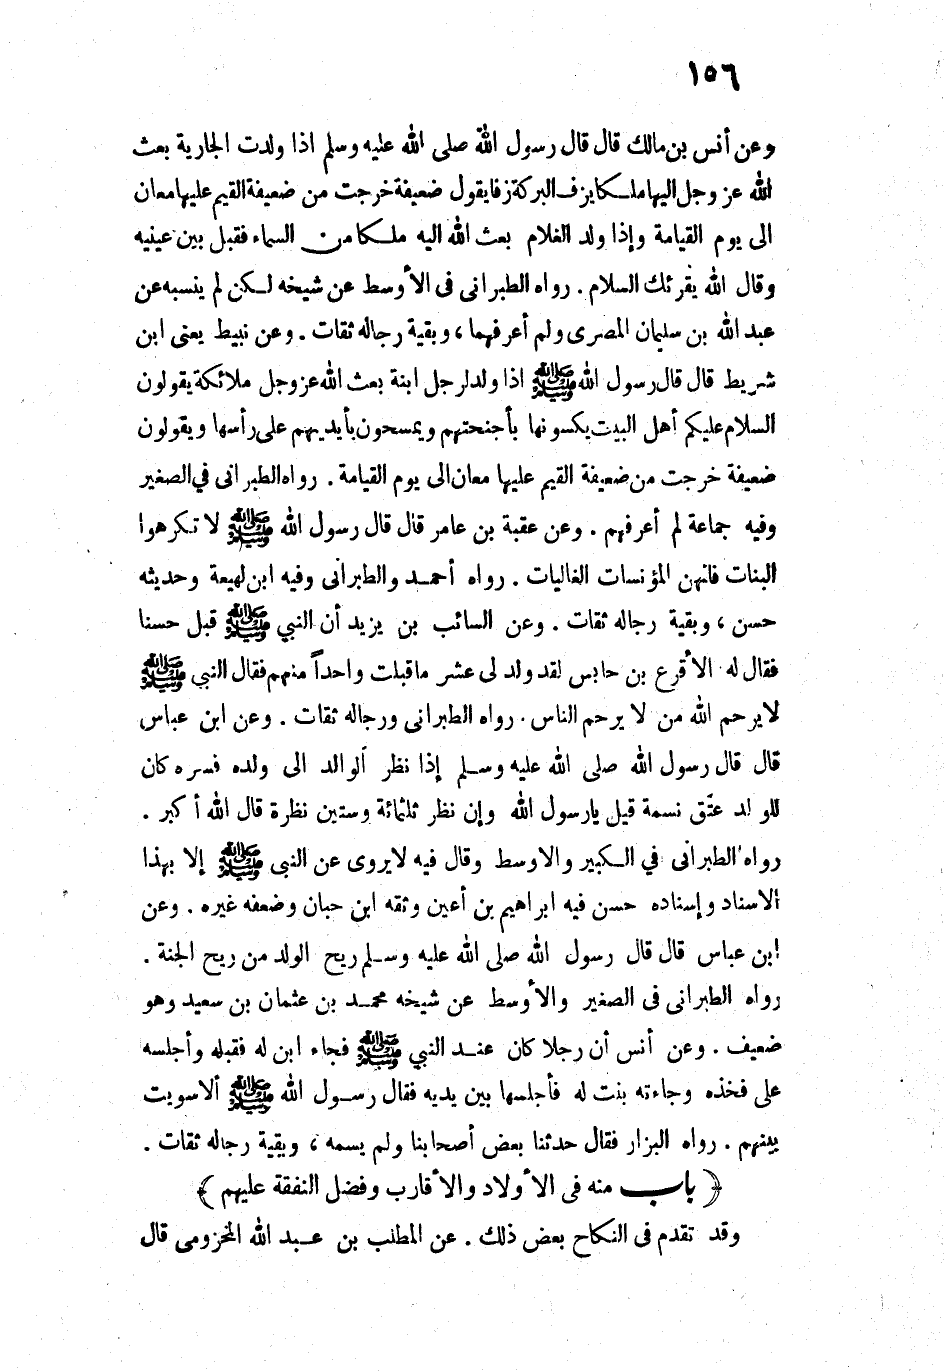 ١٥٦
وعن أنس بن مالك قال قال رسول الله صلى الله عليه وسلم اذا ولدت الجارية بعث
الله عز وجل اليها ملكا يزف البركة زفا يقول ضعيفة خرجت من ضعيفة القيم عليها معان
الى يوم القيامة وإذا ولد الغلام بعث الله اليه ملكا من السماء فقبل بين عينيه
وقال الله يقرئك السلام . رواه الطبرانى فى الأوسط عن شيخه لكن لم ينسبه عن
عبد الله بن سليمان المصرى ولم أعرفهما ، وبقية رجاله ثقات . وعن نبيط يعنى ابن
شريط قال قال رسول الله ﷺ اذا ولد لرجل ابنة بعث الله عز وجل ملائكة يقولون
السلام عليكم أهل البيت يكسونها بأجنحتهم ويمسحون بأيديهم على رأسها ويقولون
ضعيفة خرجت من ضعيفة القيم عليها معان الى يوم القيامة . رواه الطبرانى في الصغير
وفيه جماعة لم أعرفهم . وعن عقبة بن عامر قال قال رسول الله ﷺ لا تكرهوا
البنات فانهن المؤنسات الغاليات . رواه أحمد والطبرانى وفيه ابن لهيعة وحديثه
حسن ، وبقية رجاله ثقات . وعن السائب بن يزيد أن النبي ﷺ قبل حسنا
فقال له الأقرع بن حابس لقد ولد لى عشر ما قبلت واحداً منهم فقال النبي ﷺ
لا يرحم الله من لا يرحم الناس . رواه الطبرانى ورجاله ثقات . وعن ابن عباس
قال قال رسول الله صلى الله عليه وسلم إذا نظر ألوالد الى ولده فسره كان
للولد عتق نسمة قيل يارسول الله وإن نظر ثلثمائة وستين نظرة قال الله أكبر .
رواه الطبرانى في الكبير والاوسط وقال فيه لا يروى عن النبى ﷺ إلا بهذا
الاسناد وإسناده حسن فيه ابراهيم بن أعين وثقه ابن حبان وضعفه غيره . وعن
ابن عباس قال قال رسول الله صلى الله عليه وسلم ريح الولد من ريح الجنة .
رواه الطبرانى فى الصغير والأوسط عن شيخه محمد بن عثمان بن سعيد وهو
ضعيف . وعن أنس أن رجلا كان عند النبي ﷺ فجاء ابن له فقبله وأجلسه
على فخذه وجاءته بنت له فأجلسها بين يديه فقال رسول الله ﷺ ألا سويت
بينهم . رواه البزار فقال حدثنا بعض أصحابنا ولم يسمه ، وبقية رجاله ثقات .
﴿ باب منه فى الأولاد والأقارب وفضل النفقة عليهم ﴾
وقد تقدم فى النكاح بعض ذلك . عن المطلب بن عبد الله المخزومى قال